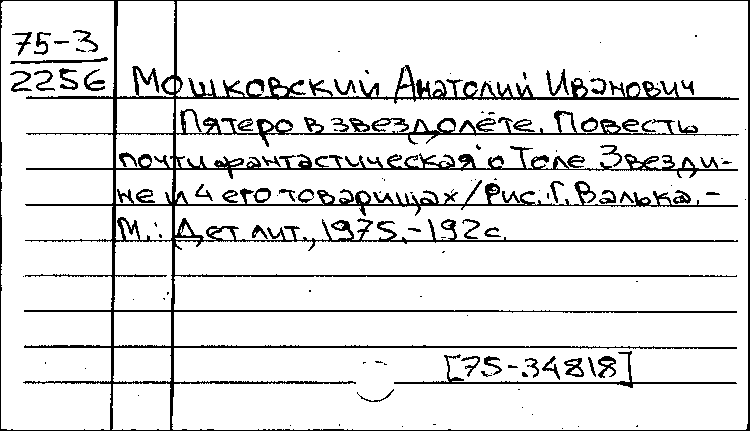 75-3
2256 Мошковский Анатолий Иванович
Пятеро в звездолёте. Повесть
почти фантастическая о Толе Звезди-
не и 4 его товарищах/Рис. Г. Валька.-
М.: Дет лит., 1975.-192с.
[75-34818]